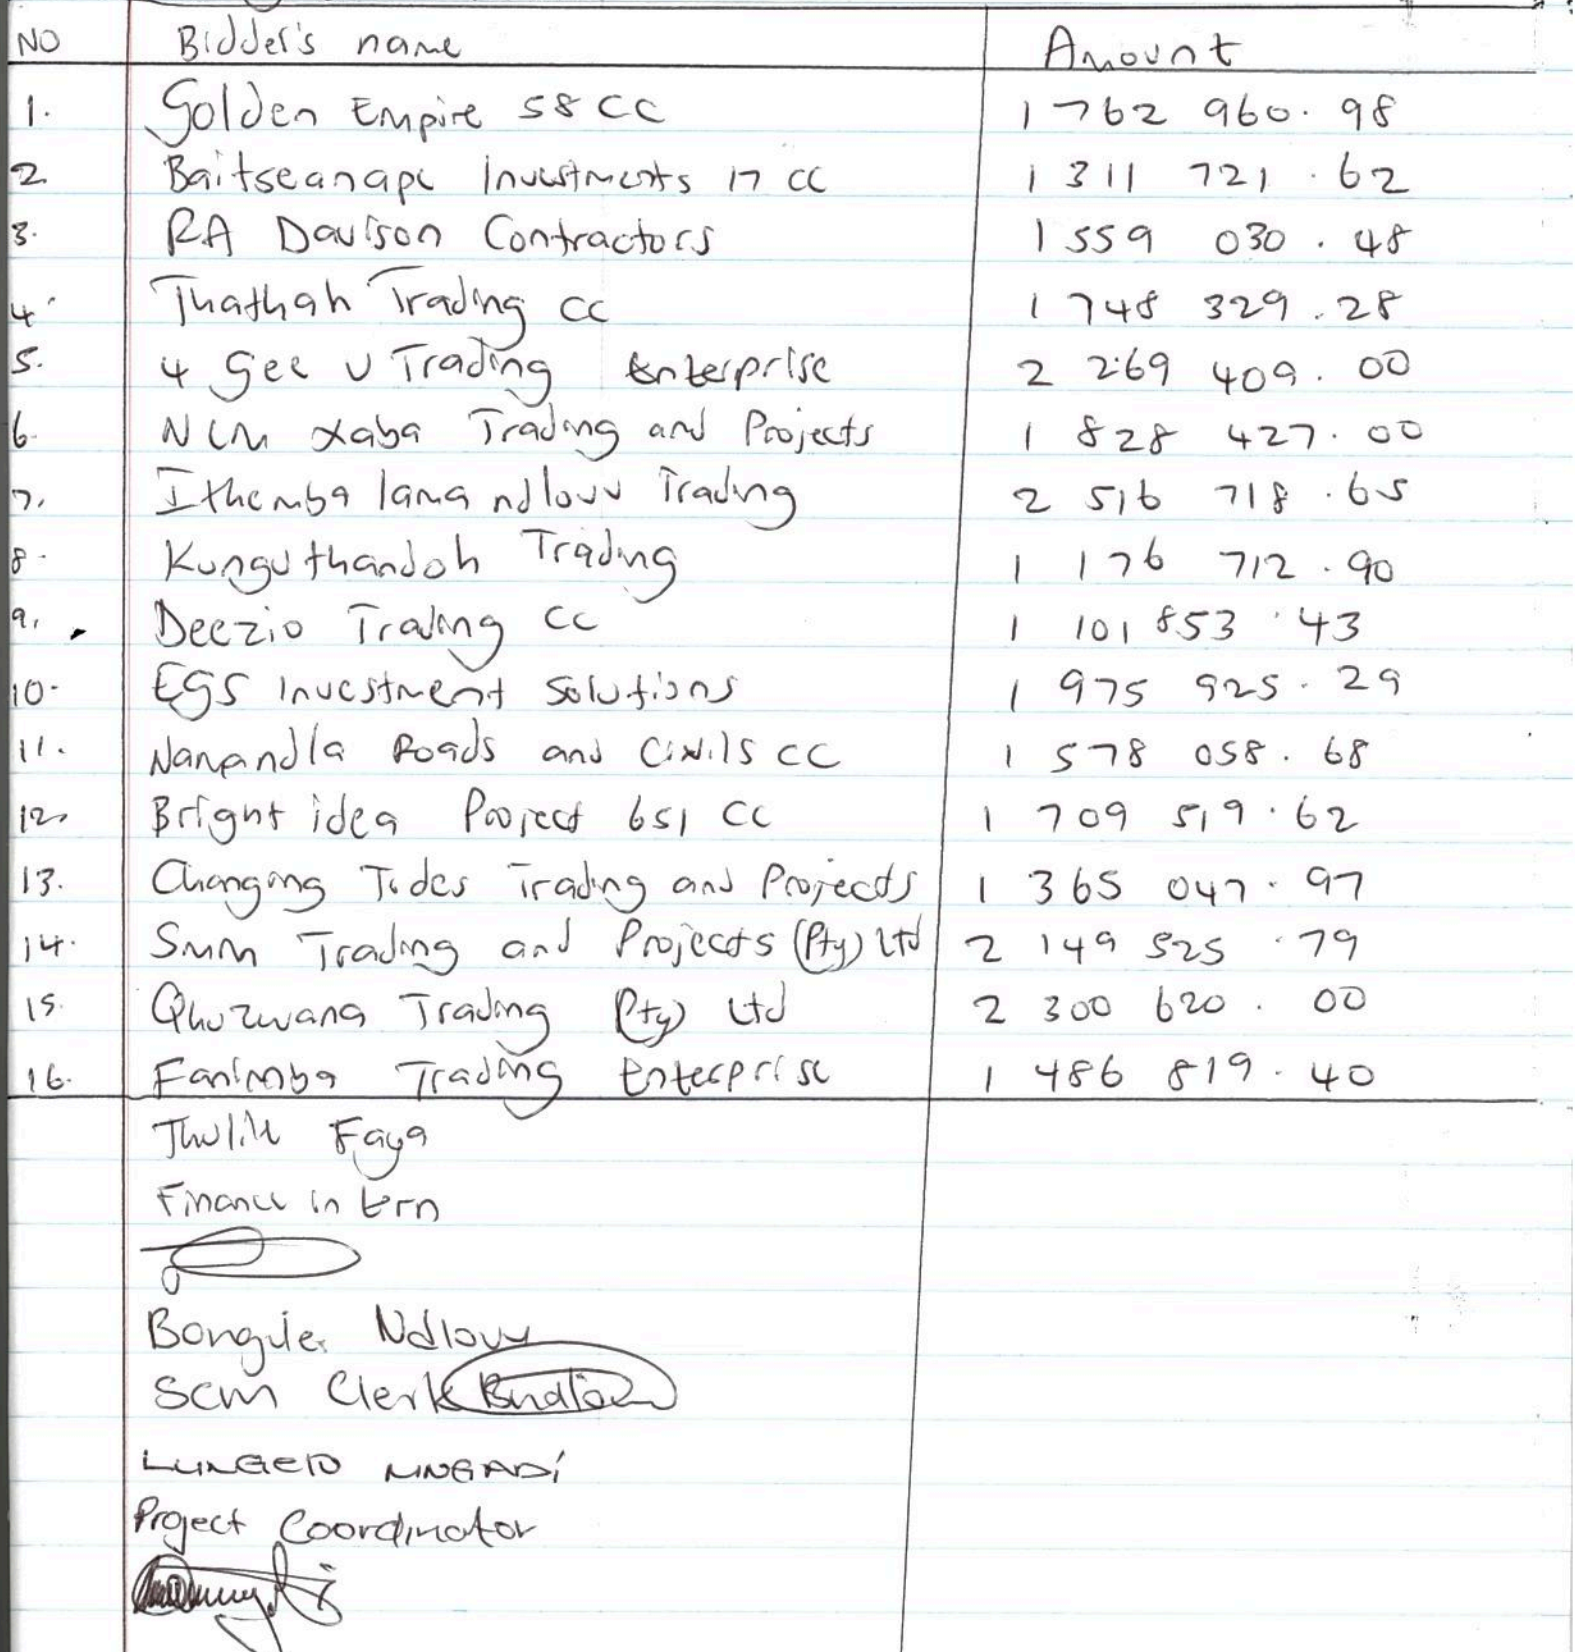 NO Bidder's name Amount
1. Golden Empire 58 CC 1 762 960.98
2. Baitseanape Investments 17 CC 1 311 721.62
3. RA Davison Contractors 1 559 030.48
4. Thathah Trading CC 1 748 329.28
5. 4 Gee U Trading Enterprise 2 269 409.00
6. NCM Xaba Trading and Projects 1 828 427.00
7. Ithemba lama ndlovu Trading 2 516 718.65
8. Kunguthandoh Trading 1 176 712.90
9. Deezio Trading CC 1 101 853.43
10. EGS Investment Solutions 1 975 925.29
11. Nanpandla Roads and Civils CC 1 578 058.68
12. Bright idea Project 651 CC 1 709 519.62
13. Changing Tides Trading and Projects 1 365 047.97
14. Smm Trading and Projects (Pty) Ltd 2 149 525.79
15. Qhuzwana Trading (Pty) Ltd 2 300 620.00
16. Fanimba Trading Enterprise 1 486 819.40
Faya
Finance intern
Ndlovu
SCM Clerk
MNGADI
Project Coordinator